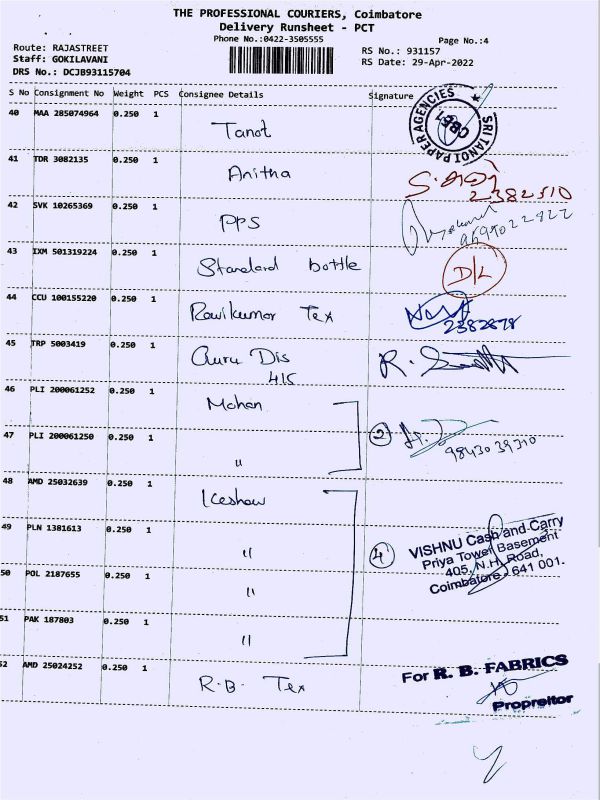 THE PROFESSIONAL COURIERS, Coimbatore
Delivery Runsheet - PCT
Phone No.:0422-3505555
Page No.:4
Route: RAJASTREET
Staff: GOKILAVANI
DRS No.: DCJB93115704
RS No.: 931157
RS Date: 29-Apr-2022
S No Consignment No Weight PCS Consignee Details Signature
40 MAA 285074964 0.250 1 Tanot
SRI TANOT PAPER AGENCIES ★ CBE-1
41 TDR 3082135 0.250 1 Anitha
2382510
42 SVK 10265369 0.250 1 PPS
43 IXM 501319224 0.250 1 Standard bottle D/L
44 CCU 100155220 0.250 1 Ravikumar Tex
2382878
45 TRP 5003419 0.250 1 Guru Dis
415
46 PLI 200061252 0.250 1 Mohan
2
47 PLI 200061250 0.250 1 "
9843039310
48 AMD 25032639 0.250 1 Keshav
49 PLN 1381613 0.250 1 "
4
VISHNU Cash and Carry
Priya Tower Basement
405, N.H. Road,
Coimbatore - 641 001.
50 POL 2187655 0.250 1 "
51 PAK 187803 0.250 1 "
52 AMD 25024252 0.250 1 R.B. Tex
For R. B. FABRICS
Propreitor